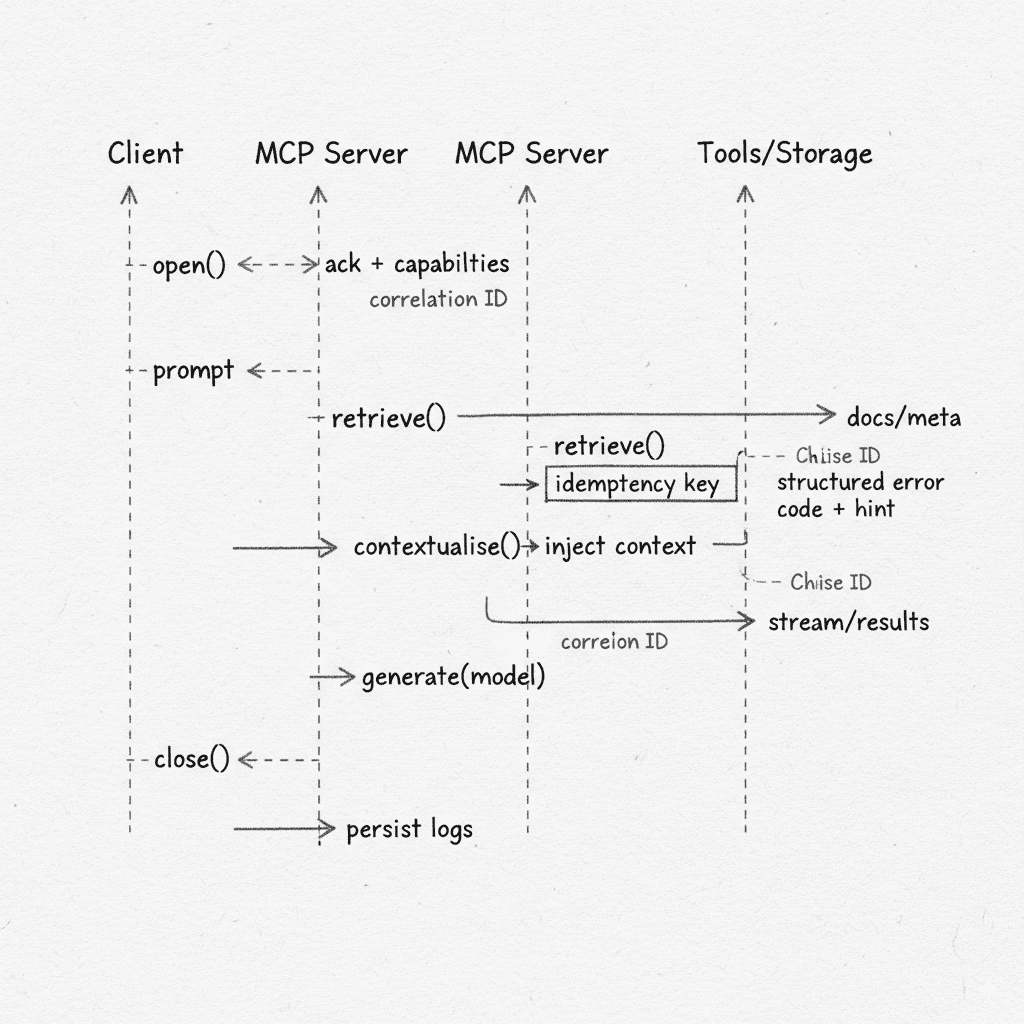 Client
MCP Server
MCP Server
Tools/Storage
open()
ack + capabilties
correlation ID
prompt
retrieve()
docs/meta
retrieve()
Chiise ID
idemptency key
structured error
code + hint
contextualise()
inject context
Chiise ID
stream/results
correion ID
generate(model)
close()
persist logs